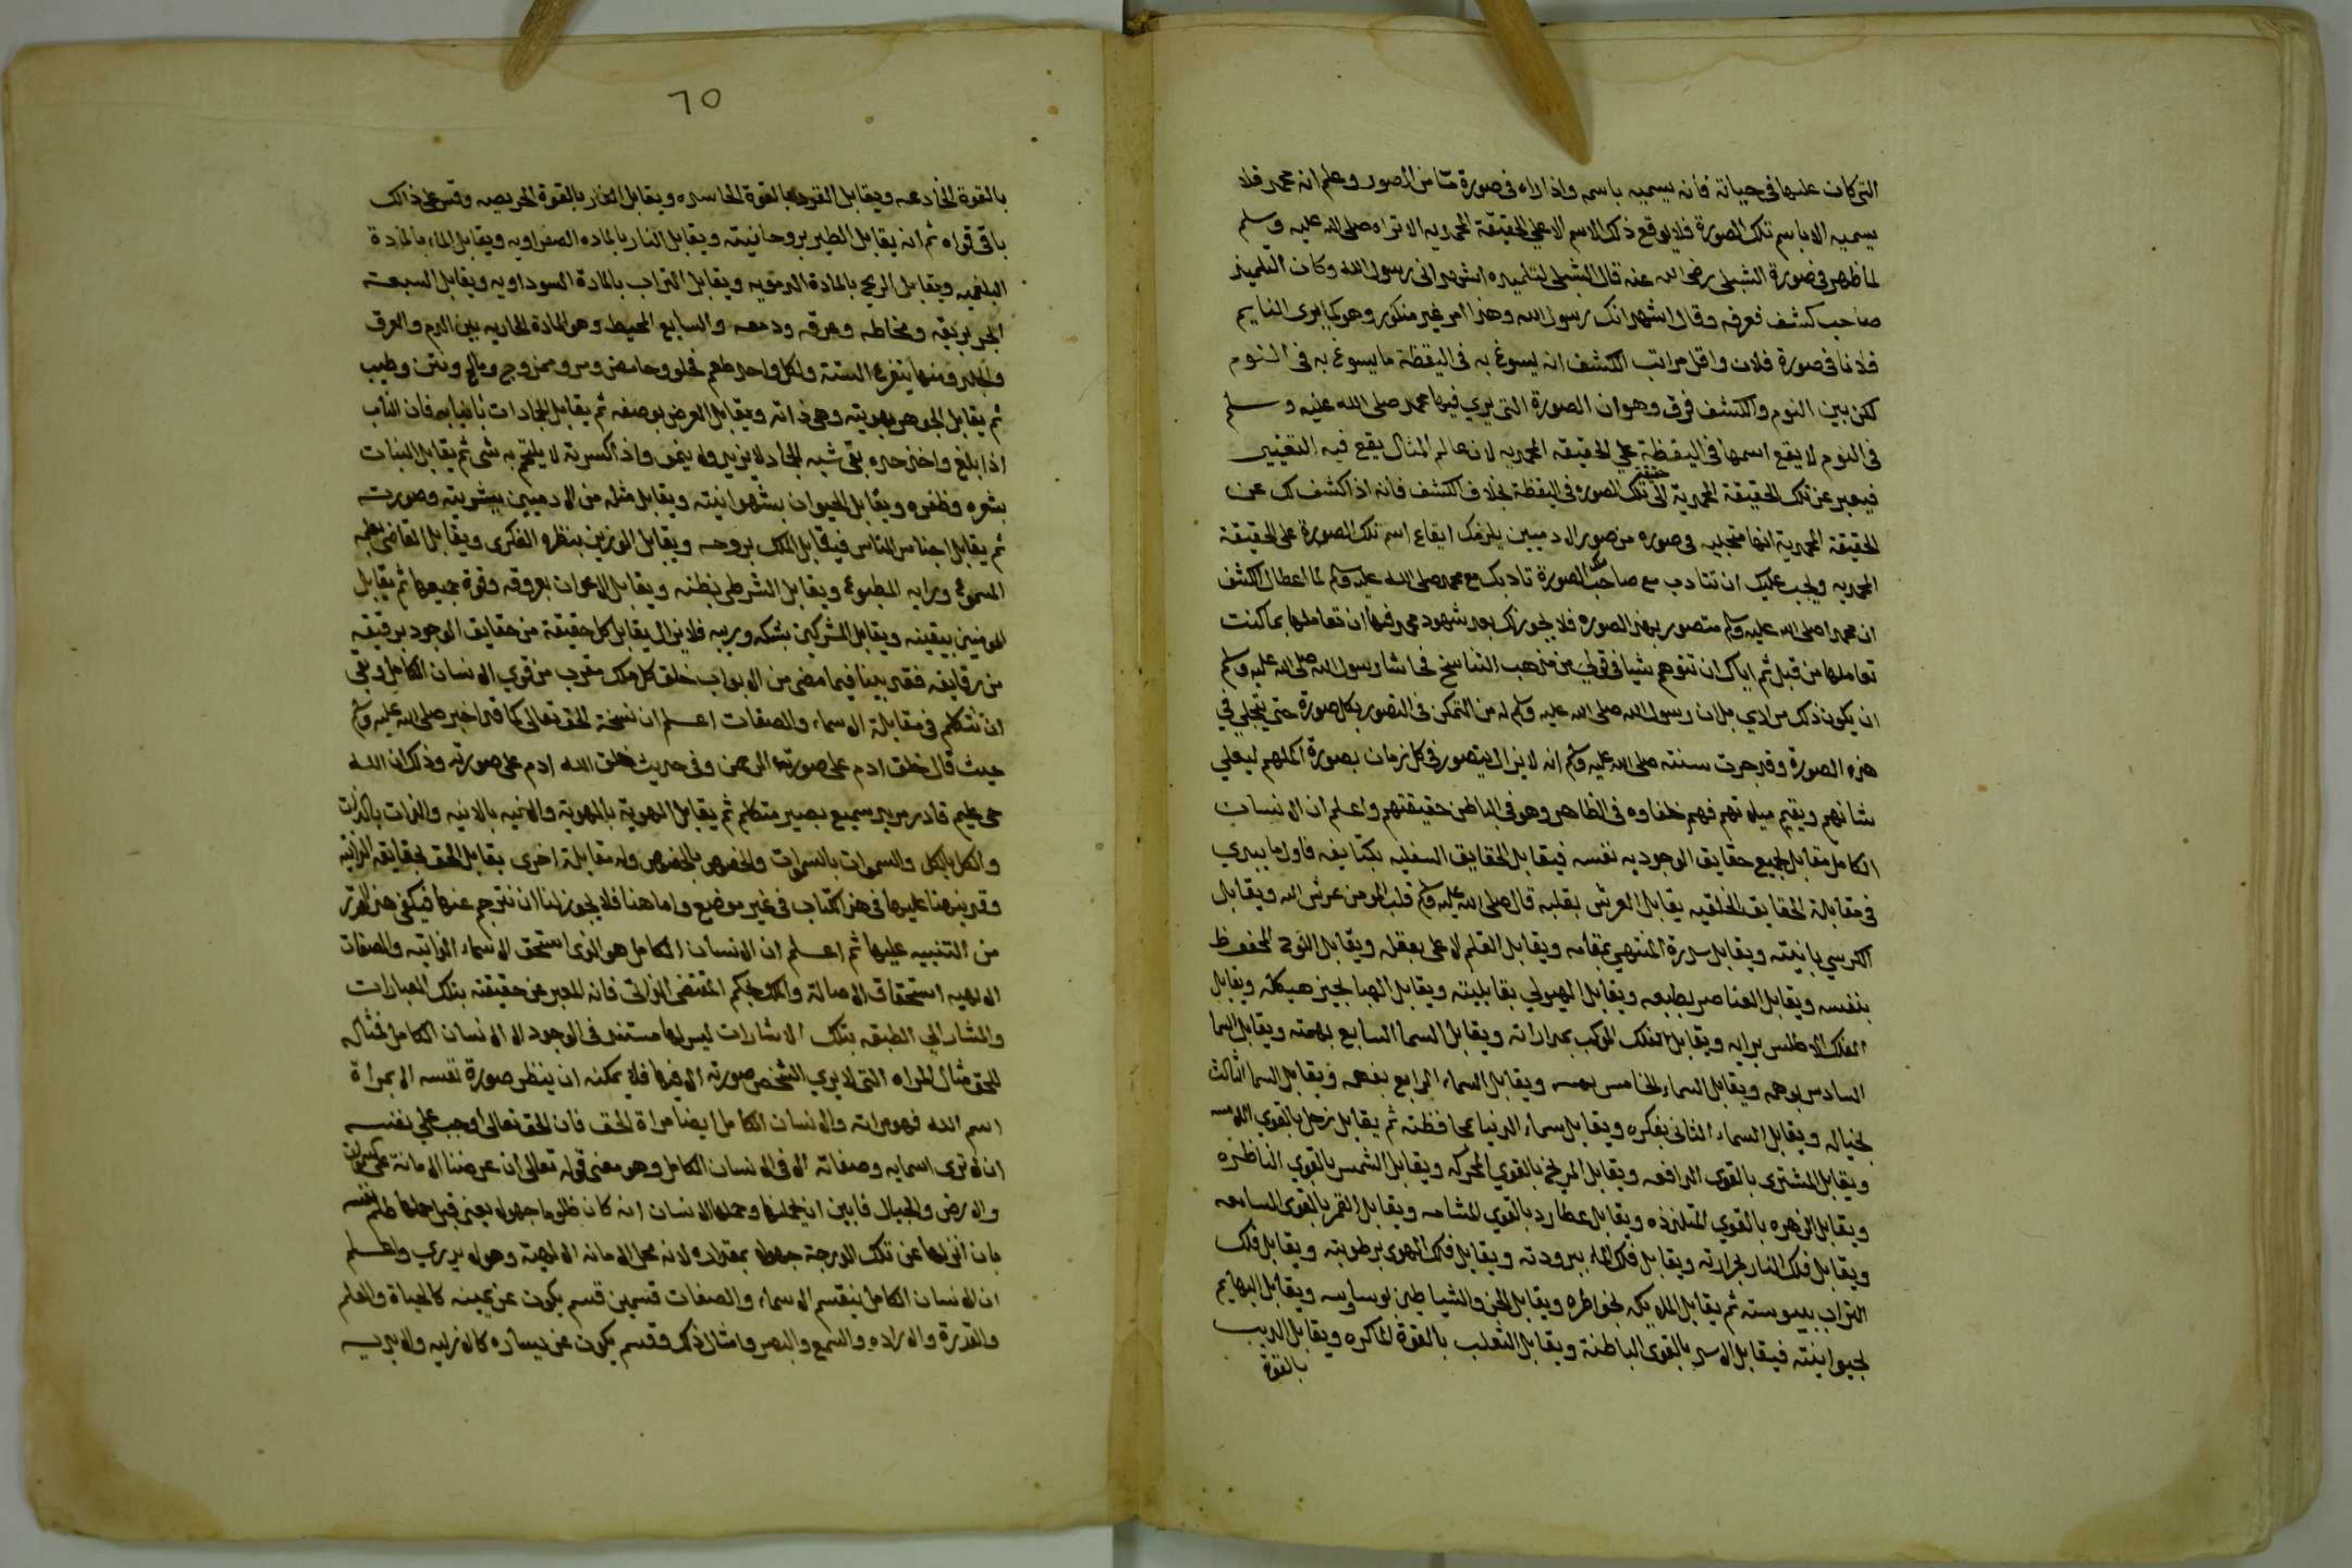 التي كان عليها في حياته فانه يسميه باسمه واذا اراه في صورة مّا من الصور وعلم انه محمد فلا
يسميه الا باسم تلك الصورة فلا يوقع ذلك الاسم الا على الحقيقة المحمديه الا تراه صلى الله عليه وسلم
لما ظهر في صورة الشبلي رضي الله عنه قال الشبلي لتلميذه اشهد اني رسول الله وكان التلميذ
صاحب كشف فعرفه وقال اشهد انك رسول الله وهذا امر غير منكور وهو كما يرى النايم
فلانا في صورة فلان واقل مراتب الكشف ان يسوغ به في اليقظة ما يسوغ به في النوم
لكن بين النوم والكشف فرق وهو ان الصورة التي يري فيها محمد صلى الله عليه وسلم
في النوم لا يقع اسمها في اليقظة علي الحقيقه المحمديه لان عالم المثال يقع فيه التغيير
فيعبر عن تلك الحقيقة المحمدية الى حقيقة تلك الصوره في اليقظة بخلاف الكشف فانه اذا كشف لك عن
الحقيقة المحمدية انها متجليه في صوره من صور الادميين يلزمك ايقاع اسم تلك الصورة على الحقيقة
المحمديه ويجب عليك ان تتادب مع صاحب تلك الصورة تادبك مع محمد صلى الله عليه وسلم لما اعطاك الكشف
ان محمدا صلى الله عليه وسلم متصور بهذه الصوره فلا يجوز لك بعد شهود محمد فيها ان تعاملها بما كنت
تعاملها من قبل ثم اياك ان تتوهم شيا في قولي من مذهب التناسخ فحاشا رسول الله صلى الله عليه وسلم
ان يكون ذلك مرادي بل ان رسول الله صلى الله عليه وسلم له من التمكن في التصور بكل صورة حتى يتجلي في
هذه الصورة وقد جرت سنته صلى الله عليه وسلم انه لا يزال يتصور في كل زمان بصورة اكملهم ليعلي
شانهم ويقيم ميلانهم فهم خلفاوه في الظاهر وهو في الباطن حقيقتهم واعلم ان الانسان
الكامل مقابل لجميع حقايق الوجود به نفسه فيقابل الحقايق السفليه بكثايفه فاول ما يبدي
في مقابلة الحقايق الخلقيه يقابل العرش بقلبه قال صلى الله عليه وسلم قلب المومن عرش الله ويقابل
الكرسي بانيته ويقابل سدرة المنتهي بمقامه ويقابل القلم الاعلى بعقله ويقابل اللوح المحفوظ
بنفسه ويقابل العناصر بطبعه ويقابل الهيولي بقابليته ويقابل الهبا بحيز هيكله ويقابل
الفلك الاطلس برايه ويقابل الفلك المكوكب بمداراته ويقابل السما السابع بهمته ويقابل السما
السادس بوهمه ويقابل السماء الخامس بهمه ويقابل السماء الرابع بفهمه ويقابل السما الثالث
بخياله ويقابل السماء الثاني بفكره ويقابل سماء الدنيا بحافظته ثم يقابل زحل بالقوي اللامسه
ويقابل المشتري بالقوى الدافعه ويقابل المريخ بالقوي المحركه ويقابل الشمس بالقوي الناظره
ويقابل الزهره بالقوي المتلذذه ويقابل عطارد بالقوي الشامه ويقابل القمر بالقوى السامعه
ويقابل فلك النار بحرارته ويقابل فلك الماء ببرودته ويقابل فلك الهوى برطوبته ويقابل فلك
التراب بيبوسته ثم يقابل الملايكه بخواطره ويقابل الجن والشياطين بوساوسه ويقابل البهايم
بحيوانيته فيقابل الاسد بالقوى الباطنة ويقابل الثعلب بالقوة الماكره ويقابل الديب
بالقوة
٦٥
بالقوة الخادعه ويقابل القرد بالقوة الحاسده ويقابل الفار بالقوة الحريصه وقس على ذالك
باقي قواه ثم انه يقابل الطير بروحانيته ويقابل النار بالماده الصفراويه ويقابل الماء بالمادة
البلغميه ويقابل الريح بالمادة الدمويه ويقابل التراب بالمادة السوداويه ويقابل السبعة
ابحر بريقه ومخاطه وعرقه ودمعه والسابع المحيط وهو المادة الجاريه بين الدم والعرق
والجلد ومنها يتفرع الستة ولكل واحد طعم فحلو وحامض ومر وممزوج ومالح ونتن وطيب
ثم يقابل الجوهر بهويته وهي ذاته ويقابل العرض بوصفه ثم يقابل الجمادات بانيابه فان الناب
اذا بلغ واخذ حده بقي شبه الجماد لا يزيد ولا ينمو واذا كسرته لا يلتحم به شي ثم يقابل النبات
بشعره وظفره ويقابل الحيوان بشهوانيته ويقابل مثله من الادميين ببشريته وصورته
ثم يقابل اجناس الناس فيقابل الملك بروحه ويقابل الوزير بنظره الفكري ويقابل القاضي بعلمه
المسموع ورايه المطبوع ويقابل الشرطي بظنه ويقابل الاعوان بعروقه وقوة جميعها ثم يقابل
المومنين بيقينه ويقابل المشركين بشكه وريبه فلا يزال يقابل كل حقيقة من حقايق الوجود برقيقه
من رقايقه فقد بينا فيما مضي من الابواب خلق كل ملك مقرب من قوي الانسان الكامل وبقي
ان نتكلم في مقابلة الاسماء والصفات اعلم ان نسخة الحق تعالى كما قد اخبر صلى الله عليه وسلم
حيث قال خلق ادم على صورته الرحمن وفي حديث خلق الله ادم على صورته وذلك ان الله
حي عليم قادر مريد سميع بصير متكلم ثم يقابل الهوية بالهوية والانيه بالانيه والذات بالذات
والكل بالكل والشمول بالشمول والخصوص بالخصوص وله مقابلة اخرى يقابل الحق بحقايقه الذاتيه
وقد نبهنا عليها في هذا الكتاب في غير موضع واما هنا فلا يجوز لنا ان نترجم عنها فيكفي هذا القدر
من التنبيه عليها ثم اعلم ان الانسان الكامل هو الذي استحق الاسماء الذاتيه والصفات
الالهيه استحقاق الاصالة والملك بحكم المقتضى الذاتي فانه المعبر عن حقيقته بتلك العبارات
والمشار الي الطبقه بتلك الاشارات ليس لها مستند في الوجود الا الانسان الكامل فمثاله
للحق مثال المراه التي لا يري الشخص صورته الا فيها فلا يمكنه ان ينظر صورة نفسه الا بمراة
اسم الله فهو مراته والانسان الكامل ايضا مراة الحق فان الحق تعالى اوجب علي نفسه
ان لا ترى اسمايه وصفاته الا في الانسان الكامل وهو معنى قوله تعالى انا عرضنا الامانة على السموات
والارض والجبال فابين ان يحملنها وحملها الانسان انه كان ظلوما جهولا يعني قد ظلم نفسه
بان انزلها عن تلك الدرجة جهولا بمقداره لانه محل الامانه الالهية وهو لا يدري واعلم
ان الانسان الكامل ينقسم الاسماء والصفات قسمين قسم يكون عن يمينه كالحياة والعلم
والقدرة والاراده والسمع والبصر وامثال ذلك وقسم يكون عن يساره كالازليه والابديه